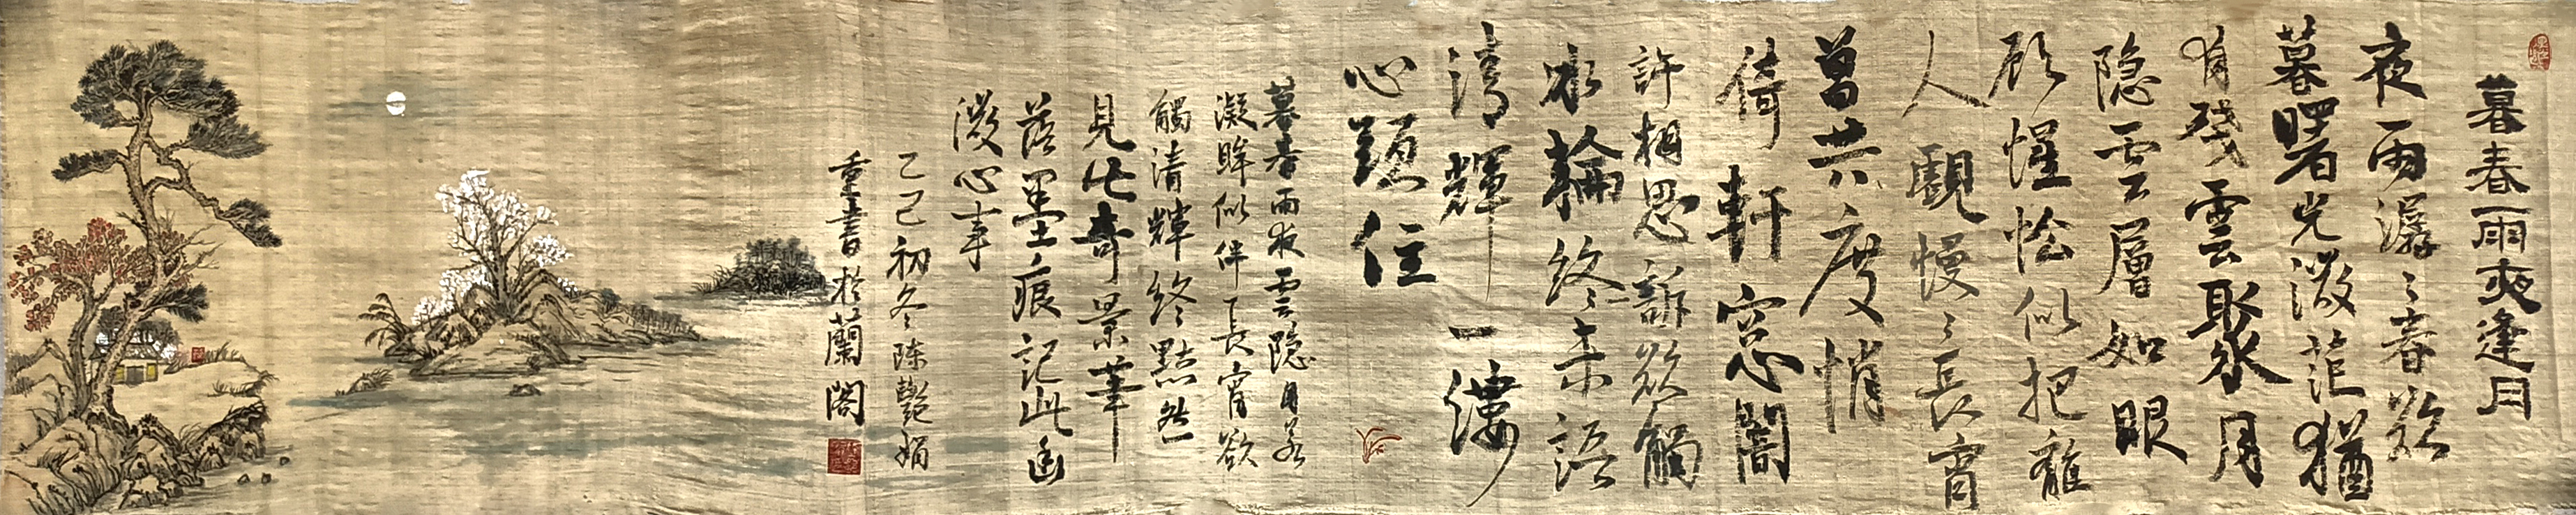 暮春雨夜逢月
夜雨潺々春欲
暮曙光微茫猶
有殘雲取冰月
隐雲層如眼
顾惺忪似把離
人覷慢々長宵
曾共度悄
倚軒窓闇
許相思訴欲觸
冰輪終未語
清輝一縷
心頭住
暮春雨夜雲隐月若
凝眸似伴長宵欲
觸清輝終黯然
見此奇景筆
落墨痕記此幽
微心事
乙巳初冬陈艷娟
重書於蘭閣